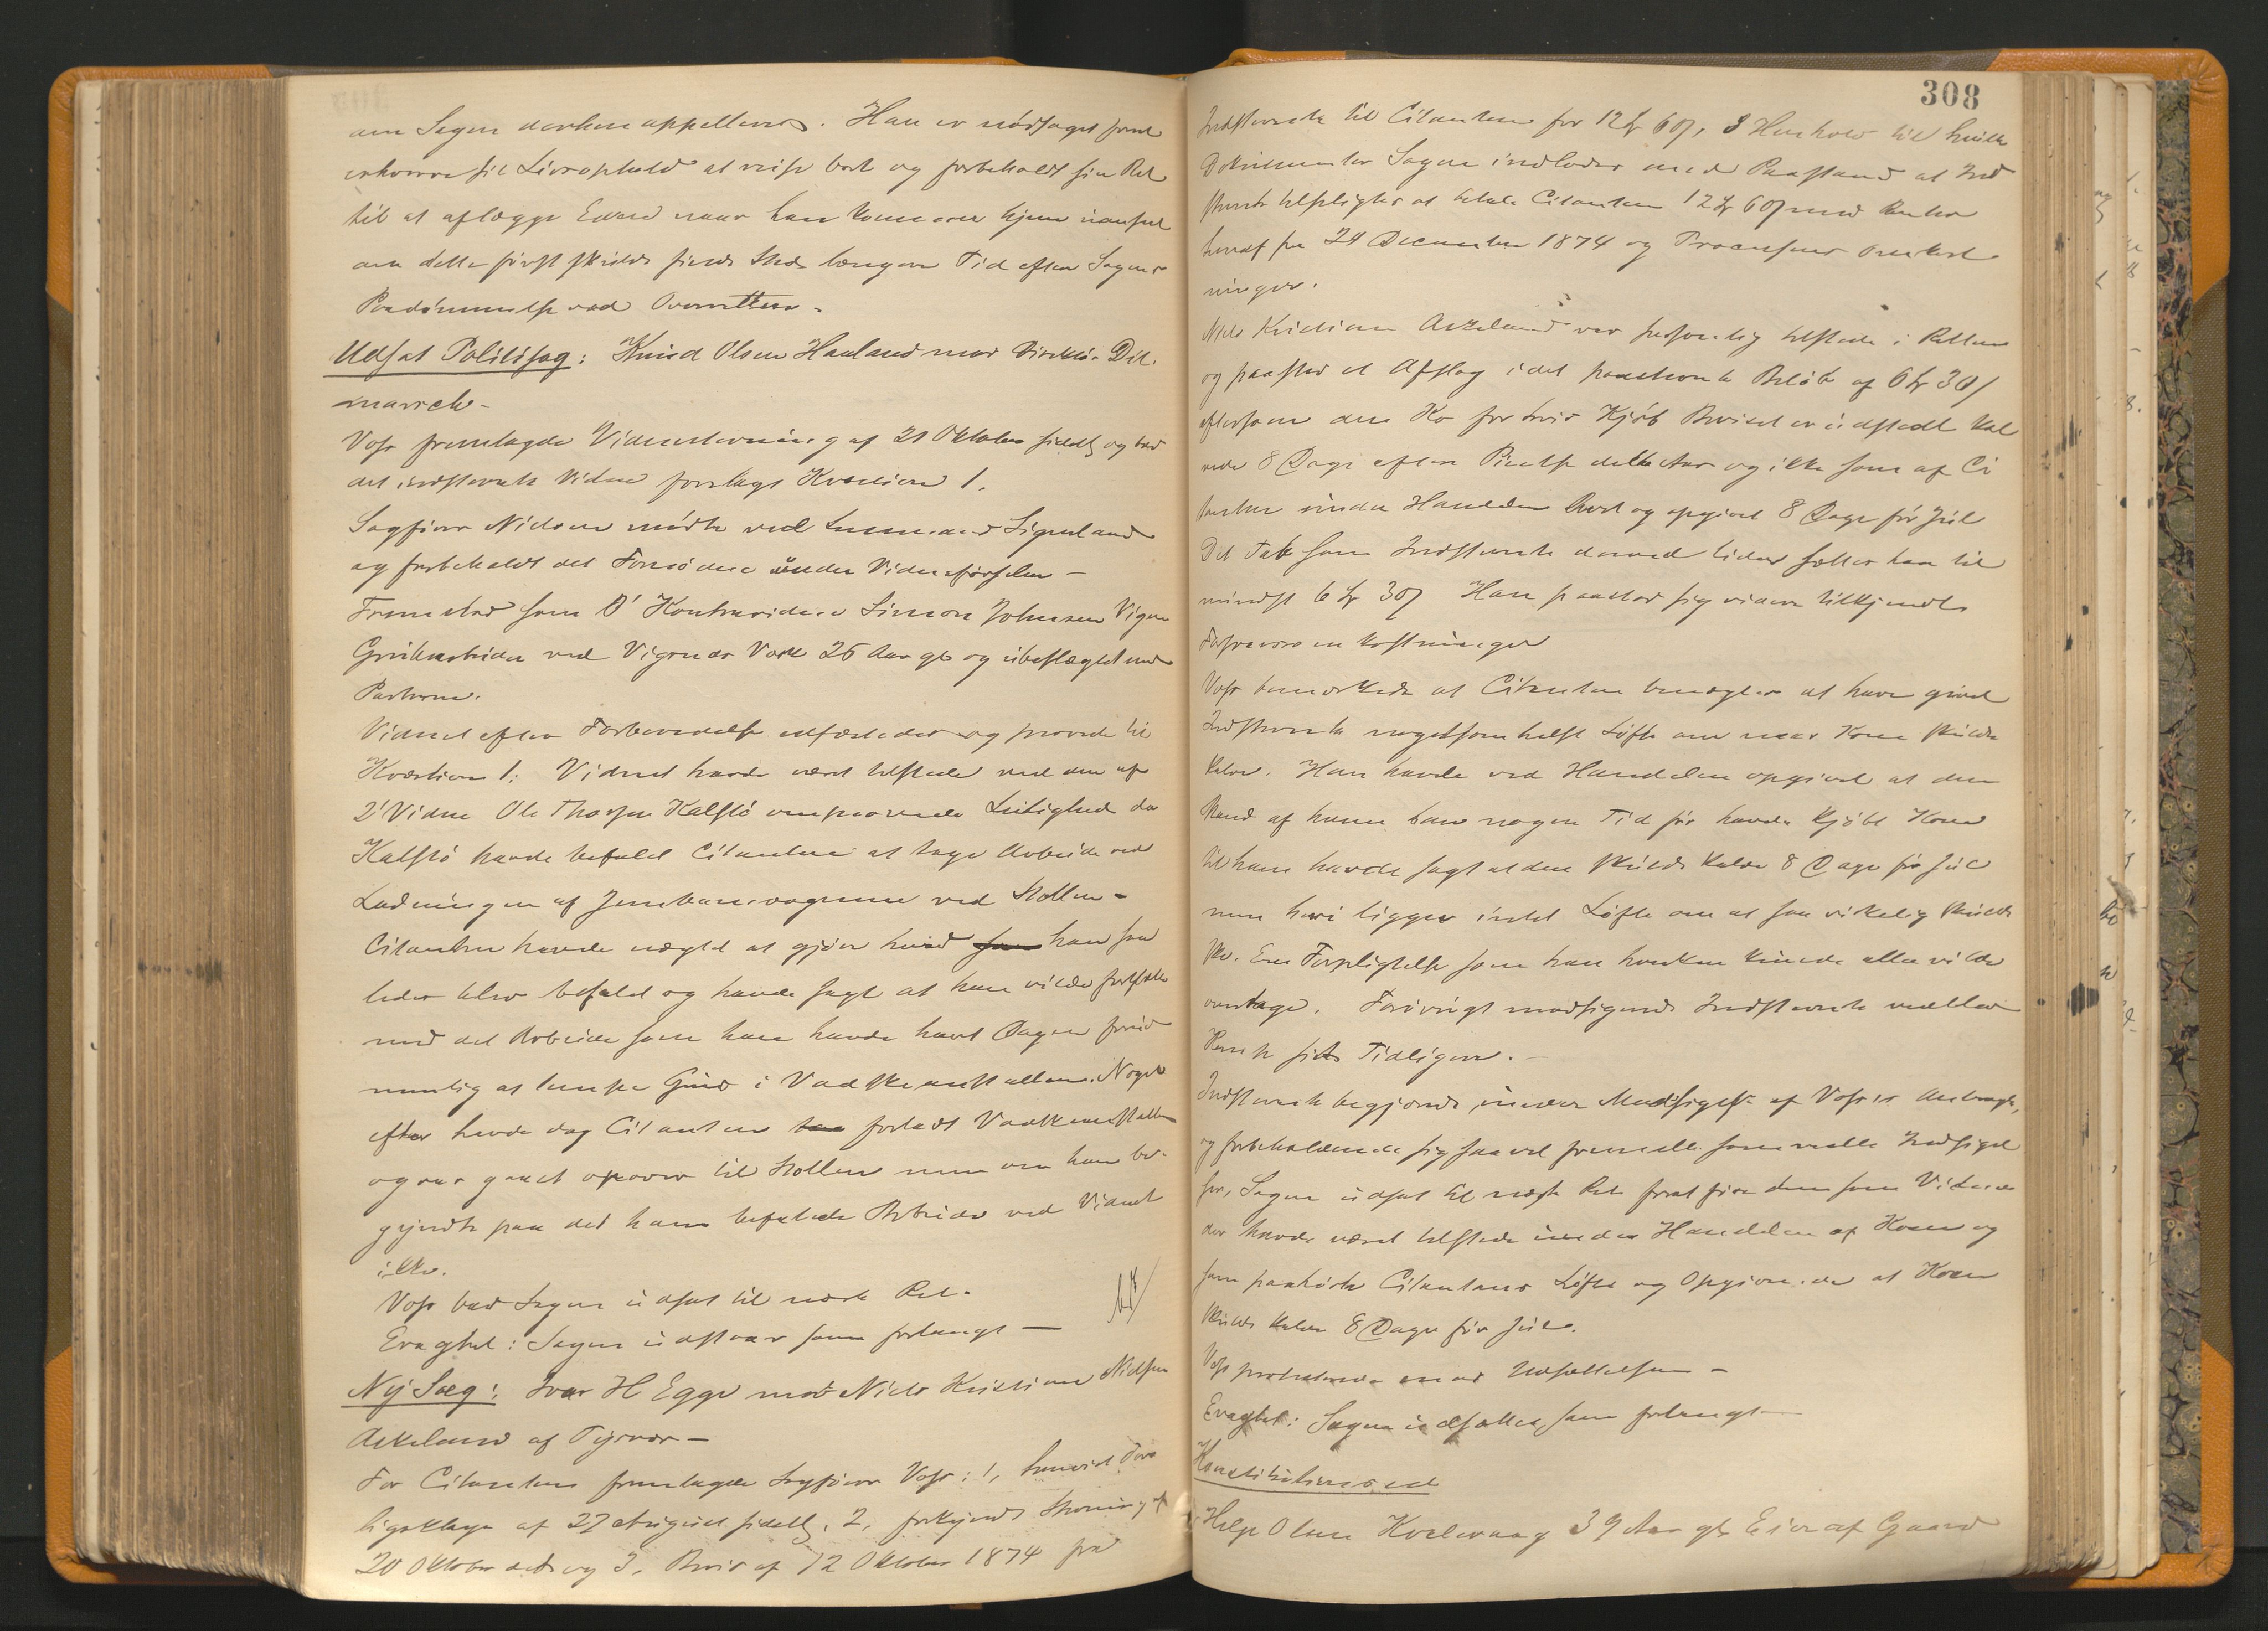 om Sagen derhen appelleres. Han er nødsaget for at
erhverve sit Livsophold at reise bort og forbeholdt sin Ret
til at aflægge Eden naar han kommer hjem uanseet
om dette først skulde finde Sted længere Tid efter Sagens
Paadømmelse ved Overretten.
Udsat Politisag: Knud Olsen Hauland mod Direktør Dit-
marsch-
Voss fremlagde Vidnestevning af 21 Oktober sidstl og bad
det indstevnte Vidne forelagt Kvæstion 1.
Sagfører Nielsen mødte ved Lensmand Ligneland
og forbeholdt det Fornødne under Vidneførselen -
Fremstod som Kontravidne Simon Johnsen Vigsn
Grubearbeider ved Vigsnæs Værk 26 Aar gl og ubeslægtet med
Parterne.
Vidnet efter Forberedelse edfæstedes og provede til
Kvæstion 1: Vidnet havde været tilstede ved den af
2' Vidne Ole Thorsen Kalstø omprovede Leilighed da
Kalstø havde befalet Citanten at tage Arbeide ved
Ladningen af Jernbanevognene ved Stollen-
Citanten havde nægtet at gjøre hvad han saa
ledes blev befalet og havde sagt at han vilde fortsætte
med det Arbeide som han havde havt Dagen forud
nemlig at lempe Grus i Vadskeanstalten. Noget
efter havde dog Citanten forladt Vadskeanstalten
og var gaaet opover til Stollen men om han be-
gyndte paa det ham befalede Arbeide ved Vidnet
ikke.
Voss bad Sagen udsat til næste Ret.
Eragtet: Sagen udstaar som forlangt -
Ny Sag: Ivar H Egge mod Niels Kristian Nielsen
Askeland af Tysvær -
For Citanten fremlagde Sagfører Voss: 1, henvist For
ligsklage af 27 August sidstl, 2, forkyndt Stevning af
20 Oktober ds og 3, Bevis af 12 Oktober 1874 fra
308
Indstevnte til Citanten for 12 60, i Henhold til hvilke
Dokumenter Sagen indlodes med Paastand at Ind
stevnte tilpligtes at betale Citanten 12 60 med Renter
heraf fra 24 December 1874 og Processens Omkost
ninger.
Niels Kristian Askeland var personlig tilstede i Retten
og paastod et Afslag i det paastevnte Beløb af 6 30
eftersom den Ko for hvis Kjøb Beviset er udstedt kal
vede 8 Dage efter dette Aar og ikke som af Ci
tanten under Handelen lovet og opgivet 8 Dage før Jul
Det Tab som Indstevnte derved lider sætter han til
mindst 6 30 Han paastod sig videre tilkjendt
Forsvarsomkostninger
Voss bemærkede at Citanten benægter at have givet
Indstevnte nogetsomhelst Løfte om naar Koen skulde
kalve. Han havde ved Handelen opgivet at den
Mand af hvem han nogen Tid før havde kjøbt Koen
til ham havde sagt at den skulde kalve 8 Dage før Jul
men heri ligger intet Løfte om at saa virkelig skulde
ske. En Forpligtelse som han hverken kunde eller vilde
overtage. Forøvrigt modsigende Indstevnte
sit Tidligere. -
Indstevnte begjærede, under Modsigelse af Voss's Anbragte,
og forbeholdende sig saavel formelle som reelle Indsigel
ser, Sagen udsat til næste Ret forat føre dem som Vidner
der havde været tilstede under Handelen af Koen og
som paahørte Citantens Løfte og Opgivende at Koen
skulde kalve 8 Dage før Jul.
Voss protesterede mod Udsættelsen -
Eragtet: Sagen udsættes som forlangt -
Konstitutionsed
Helge Olsen Kvalevaag 39 Aar gl Eier af Gaard